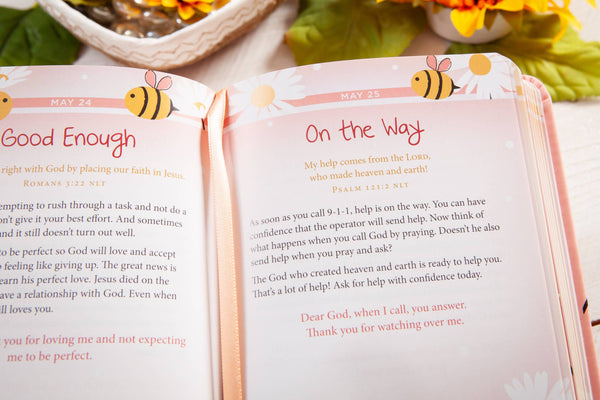 MAY 24
Good Enough
right with God by placing our faith in Jesus.
ROMANS 3:22 NLT
empting to rush through a task and not do a
on't give it your best effort. And sometimes
and it still doesn't turn out well.
to be perfect so God will love and accept
feeling like giving up. The great news is
earn his perfect love. Jesus died on the
ave a relationship with God. Even when
ill loves you.
you for loving me and not expecting
me to be perfect.
MAY 25
On the Way
My help comes from the LORD,
who made heaven and earth!
PSALM 121:2 NLT
As soon as you call 9-1-1, help is on the way. You can have
confidence that the operator will send help. Now think of
what happens when you call God by praying. Doesn't he also
send help when you pray and ask?
The God who created heaven and earth is ready to help you.
That's a lot of help! Ask for help with confidence today.
Dear God, when I call, you answer.
Thank you for watching over me.